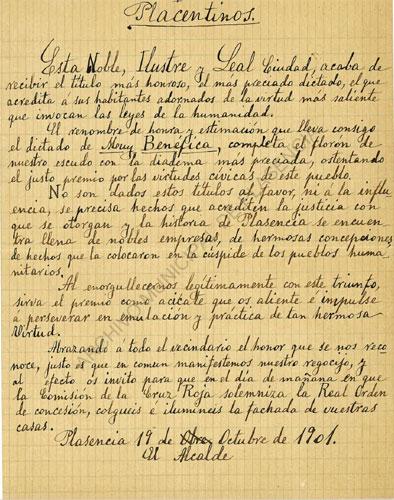 Placentinos.
Esta Noble, Ilustre y Leal Ciudad, acaba de
recibir el titulo más honroso, el más preciado dictado, el que
acredita á sus habitantes adornados de la virtud más saliente
que invocan las leyes de la humanidad.
El renombre de honra y estimacion que lleva consigo
el dictado de Muy Benéfica, completa el floron de
nuestro escudo con la diadema más preciada, ostentando
el justo premio por las virtudes civicas de este pueblo.
No son dados estos titulos al favor, ni á la influ-
encia, se precisa hechos que acrediten la justicia con
que se otorgan y la historia de Plasencia se encuen-
tra llena de nobles empresas, de hermosas concepciones
de hechos que la colocaron en la cúspide de los pueblos huma-
nitarios.
Al enorgullecernos legítimamente con este triunfo,
sirva el premio como acicate que os aliente é impulse
á perseverar en emulación y práctica de tan hermosa
Virtud.
Abrazando á todo el vecindario el honor que se nos reco-
noce, justo es que en comun manifestemos nuestro regocijo, y
al efecto os invito para que en el dia de mañana en que
la Comisión de la Cruz Roja solemniza la Real Orden
de concesión, colgueis é ilumineis la fachada de vuestras
casas.
Plasencia 19 de Octubre de 1901.
El Alcalde